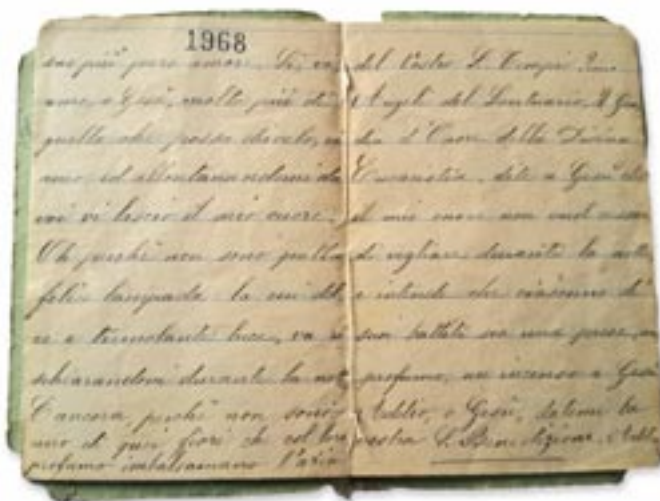 1968
suo più puro amore. Si, va
amo, o Gesù, molto più di
quello che posso dirvelo, v
amo ed allontanandomi da
voi vi lascio il mio cuore.
Oh perchè non sono quella
felice lampada la cui
e tremolante luce, va
schiarandovi durante la not
E ancora, perchè non sono
uno di quei fiori che col loro
profumo imbalsamano l'aria
del Vostro S. Tempio?
Angeli del Santuario, 
dia d'Onore della Divina
Eucaristia, dite a Gesù che
il mio cuore non vuol
di vegliare durante la notte
e intende che ciascuno di
suoi battiti sia una prece, un
profumo, un incenso a Gesù
Addio, o Gesù, datemi la
vostra S. Benedizione. Addio